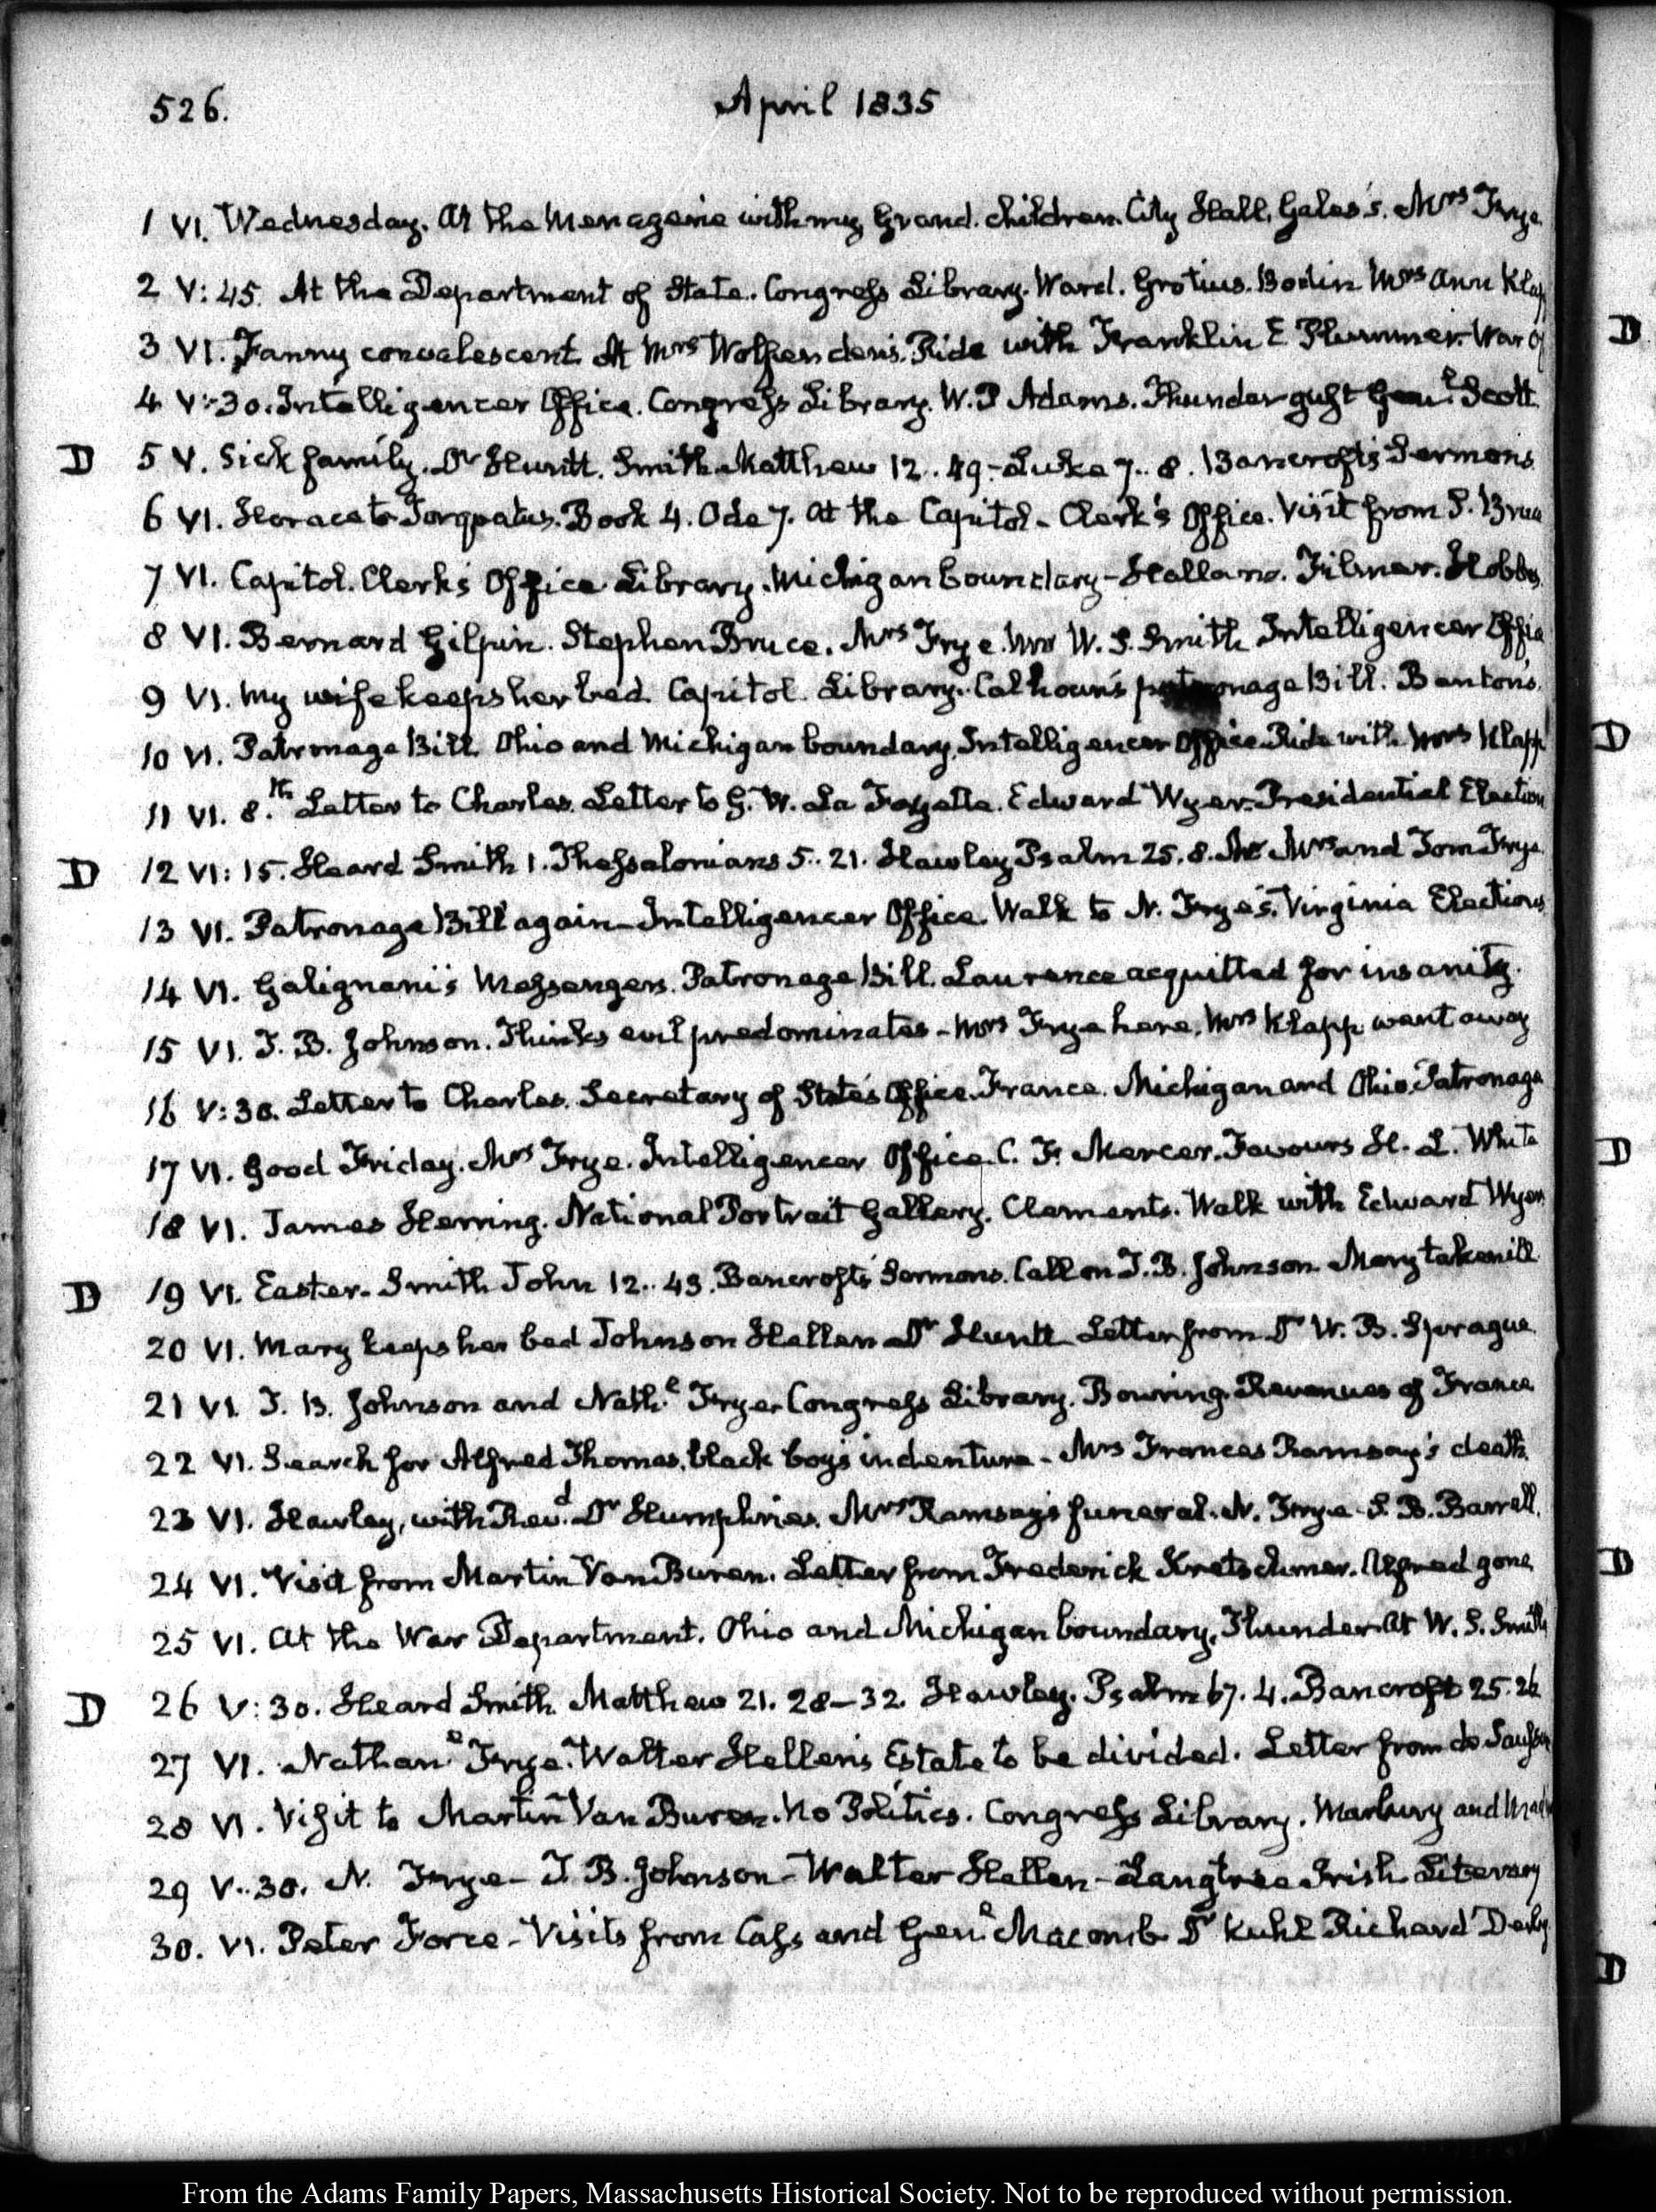 526.
April 1835
1 VI. Wednesday. At the Menagerie with my Grand. children. City Hall. Gales's. Mrs Frye
2 V:45. At the Department of State. Congress Library. Ward. Grotius. Bodin Mrs Ann Klap
3 VI. Fanny convalescent At Mrs Wolfenden's. Ride with Franklin E Plummer. War of
4 V:30. Intelligencer Office. Congress Library. W. P Adams. Thunder gust Genl Scott
D 5 V. Sick family. Dr Huntt. Smith Matthew 12..49. Luke 7..8. Bancroft's Sermons
6 VI. Horace to Torquatus. Book 4. Ode 7. At the Capitol. Clerk's Office. Visit from S. Bruce
7 VI. Capitol. Clerk's Office Library. Michigan boundary - Hallams. Filmer. Hobbes
8 VI. Bernard Gilpin. Stephen Bruce. Mrs Frye. Mrs W. S. Smith Intelligencer Office
9 VI. My wife keeps her bed. Capitol. Library. Calhoun's patronage Bill. Benton's.
10 VI. Patronage Bill. Ohio and Michigan boundary. Intelligencer Office. Ride with Mrs Klapp
11 VI. 8.th Letter to Charles. Letter to G. W. La Fayette. Edward Wyer. Presidential Election
D 12 VI:15. Heard Smith 1. Thessalonians 5..21. Hawley Psalm 25.8. Mrs and Tom Frye
13 VI. Patronage Bill again - Intelligencer Office. Walk to N. Frye's. Virginia Elections
14 VI. Galignani's Messengers. Patronage Bill. Laurence acquitted for insanity.
15 VI. T. B. Johnson. Thinks evil predominates - Mrs Frye here. Mrs Klapp went away
16 V:30. Letter to Charles. Secretary of State's Office. France. Michigan and Ohio. Patronage
17 VI. Good Friday. Mrs Frye. Intelligencer Office. C. F. Mercer. Favours H. L. White
18 VI. James Herring. National Portrait Gallery. Clements. Walk with Edward Wyer
D 19 VI. Easter. Smith John 12..43. Bancroft's Sermons. Call on T. B. Johnson. Mary taken ill
20 VI. Mary keeps her bed Johnson Hellen Dr Huntt Letter from Dr W. B. Sprague.
21 VI. T. B. Johnson and Nathl Frye. Congress Library. Bowring. Revenues of France
22 VI. Search for Alfred Thomas, black boy's indenture - Mrs Frances Ramsay's death.
23 VI. Hawley, with Revd. Dr Humphries. Mrs Ramsay's funeral. N. Frye - S. B. Barrell.
24 VI. Visit from Martin Van Buren. Letter from Frederick Kretschmer. Alfred gone
25 VI. At the War Department. Ohio and Michigan boundary. Thunder. At W. S. Smith
D 26 V:30. Heard Smith. Matthew 21. 28-32. Hawley. Psalm 67. 4. Bancroft 25. 26
27 VI. Nathanl Frye. Walter Hellen's Estate to be divided. Letter from
28 VI. Visit to Martin Van Buren. No Politics. Congress Library. Marbury and
29 V..30. N. Frye - T. B. Johnson - Walter Hellen - Langtree Irish Literary
30. VI. Peter Force - Visits from Cass and Genl Macomb Dr Kuhl Richard Derby
D
D
D
D
D
From the Adams Family Papers, Massachusetts Historical Society. Not to be reproduced without permission.